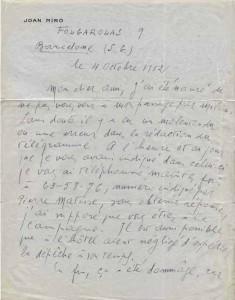 JOAN MIRÓ
FOLGAROLAS 9
Barcelone (S.G.)
le 4 Octobre 1952.
Mon cher ami, j'ai été navré de
ne pas vous voir à mon passage par
Sans doute il y a eu un malentendu
ou une erreur dans la rédaction du
télégramme. A l'heure et au jour
que je vous avais indiqué dans celui-ci
je vous ai téléphonné
63-59-76, numéro indiqué par
Pierre Matisse, sans obtenir réponse,
j'ai supposé que vous étiez à la
campagne. Il est aussi possible
que à l'hôtel aient négligé d'expédier
la dépêche à temps.
ça a été dommage, car